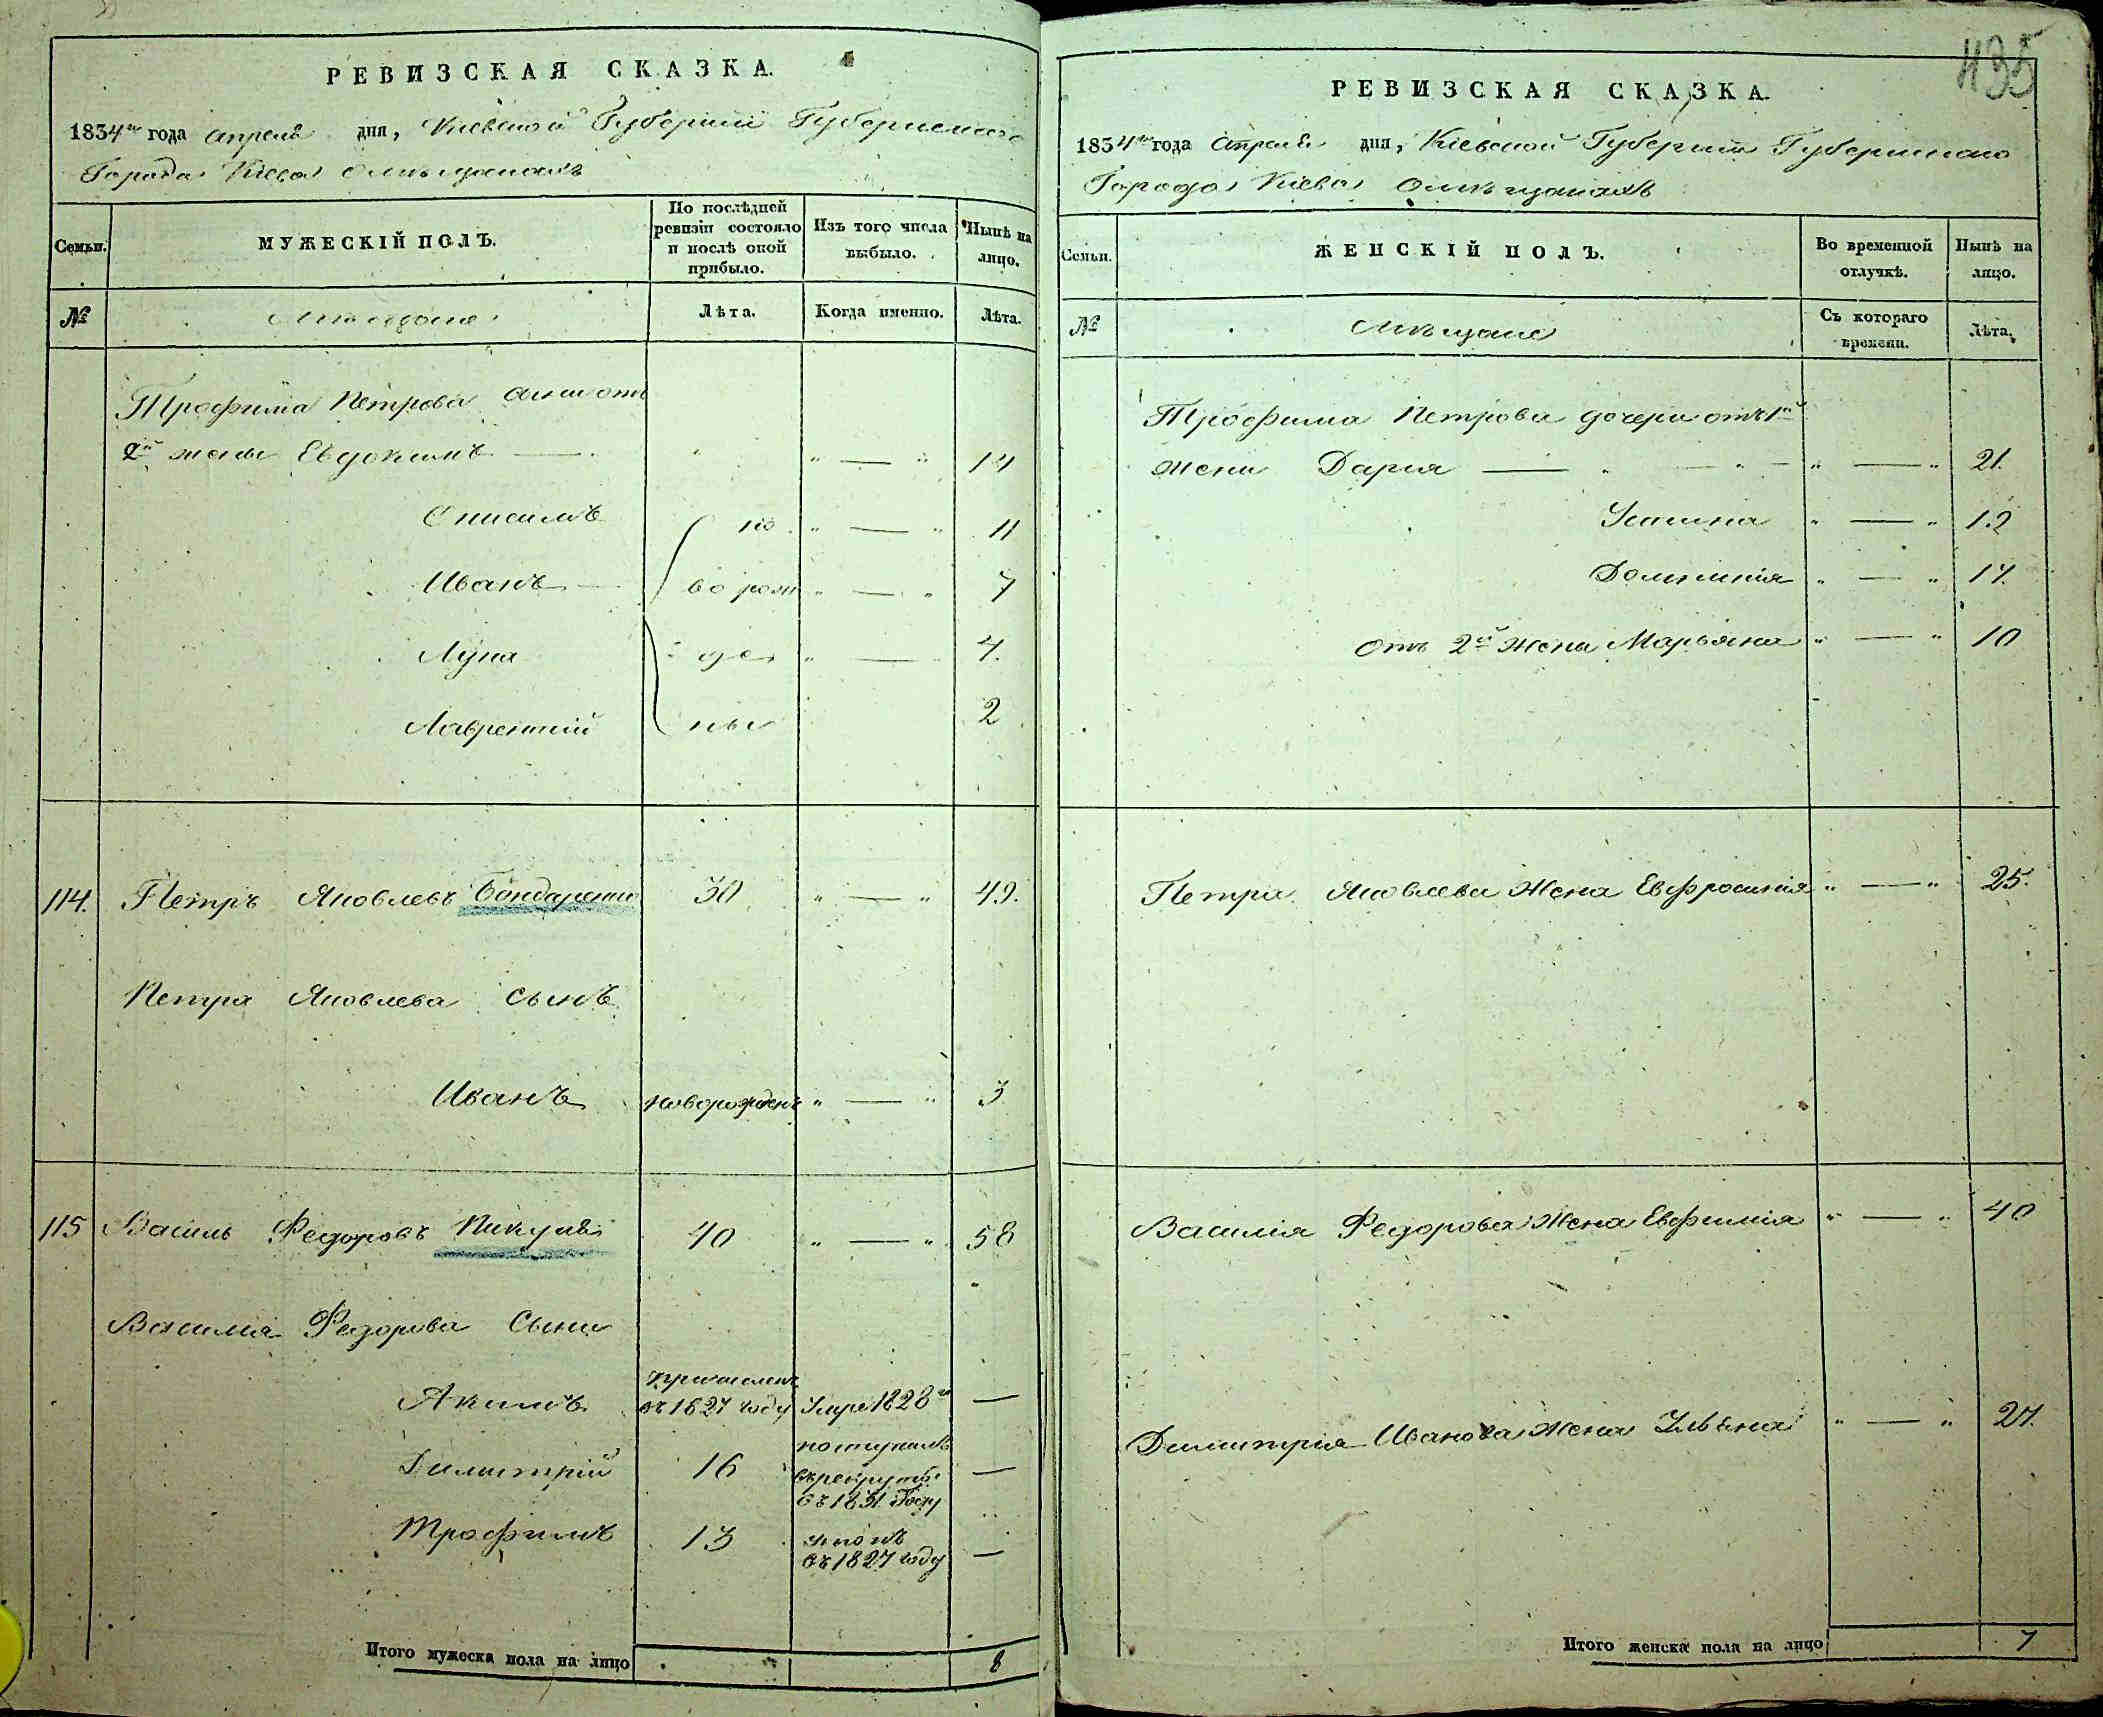 РЕВИЗСКАЯ СКАЗКА.
1834го года апреля дня, Киевской Губернии Губернского
Города Киева о мещанахъ
Семьи.
МУЖЕСКІЙ ПОЛЪ.
По послѣдней ревизіи состояло и послѣ оной прибыло.
Изъ того числа выбыло.
Нынѣ на лицо.
№
Мещане
Лѣта.
Когда именно.
Лѣта.
Трофима Петрова сыни отъ
2й жены Евдокимъ — " " — " 14
" — " 11
Иванъ — " — " 7
Лука " — 4.
Лаврентий 2
новорожденые
114. Петръ Яковлевъ Бондаренко 30 " — " 49.
Петра Яковлева сынъ
Иванъ новорожденъ " — " 3
115 Василь Федоровъ Пикуль 40 " — " 58
Василия Федорова Сыни
Акимъ
въ 1827 году Умре 1828го —
Димитрий 16 поступилъ въ рекруты въ 1831. Году —
Трофимъ 13
въ 1827 году —
Итого мужеска пола на лицо 8
435
РЕВИЗСКАЯ СКАЗКА.
1834го года апреля дня, Киевской Губернии Губернского
Города Киева о мещанахъ
Семьи.
ЖЕНСКІЙ ПОЛЪ.
Во временной отлучкѣ.
Нынѣ на лицо.
№
Мещане
Съ котораго времени.
Лѣта.
Трофима Петрова дочери отъ 1й
жени Дария — " — " — " — " 21.
" — " 12
Домникия " — " 17.
отъ 2й жены Марьяна " — " 10
Петра Яковлева Жена Евфросиния " — " 25.
Василия Федорова Жена Евфимия " — " 40
Димитрия Иванова Жена Ульяна " — " 27.
Итого женска пола на лицо 7